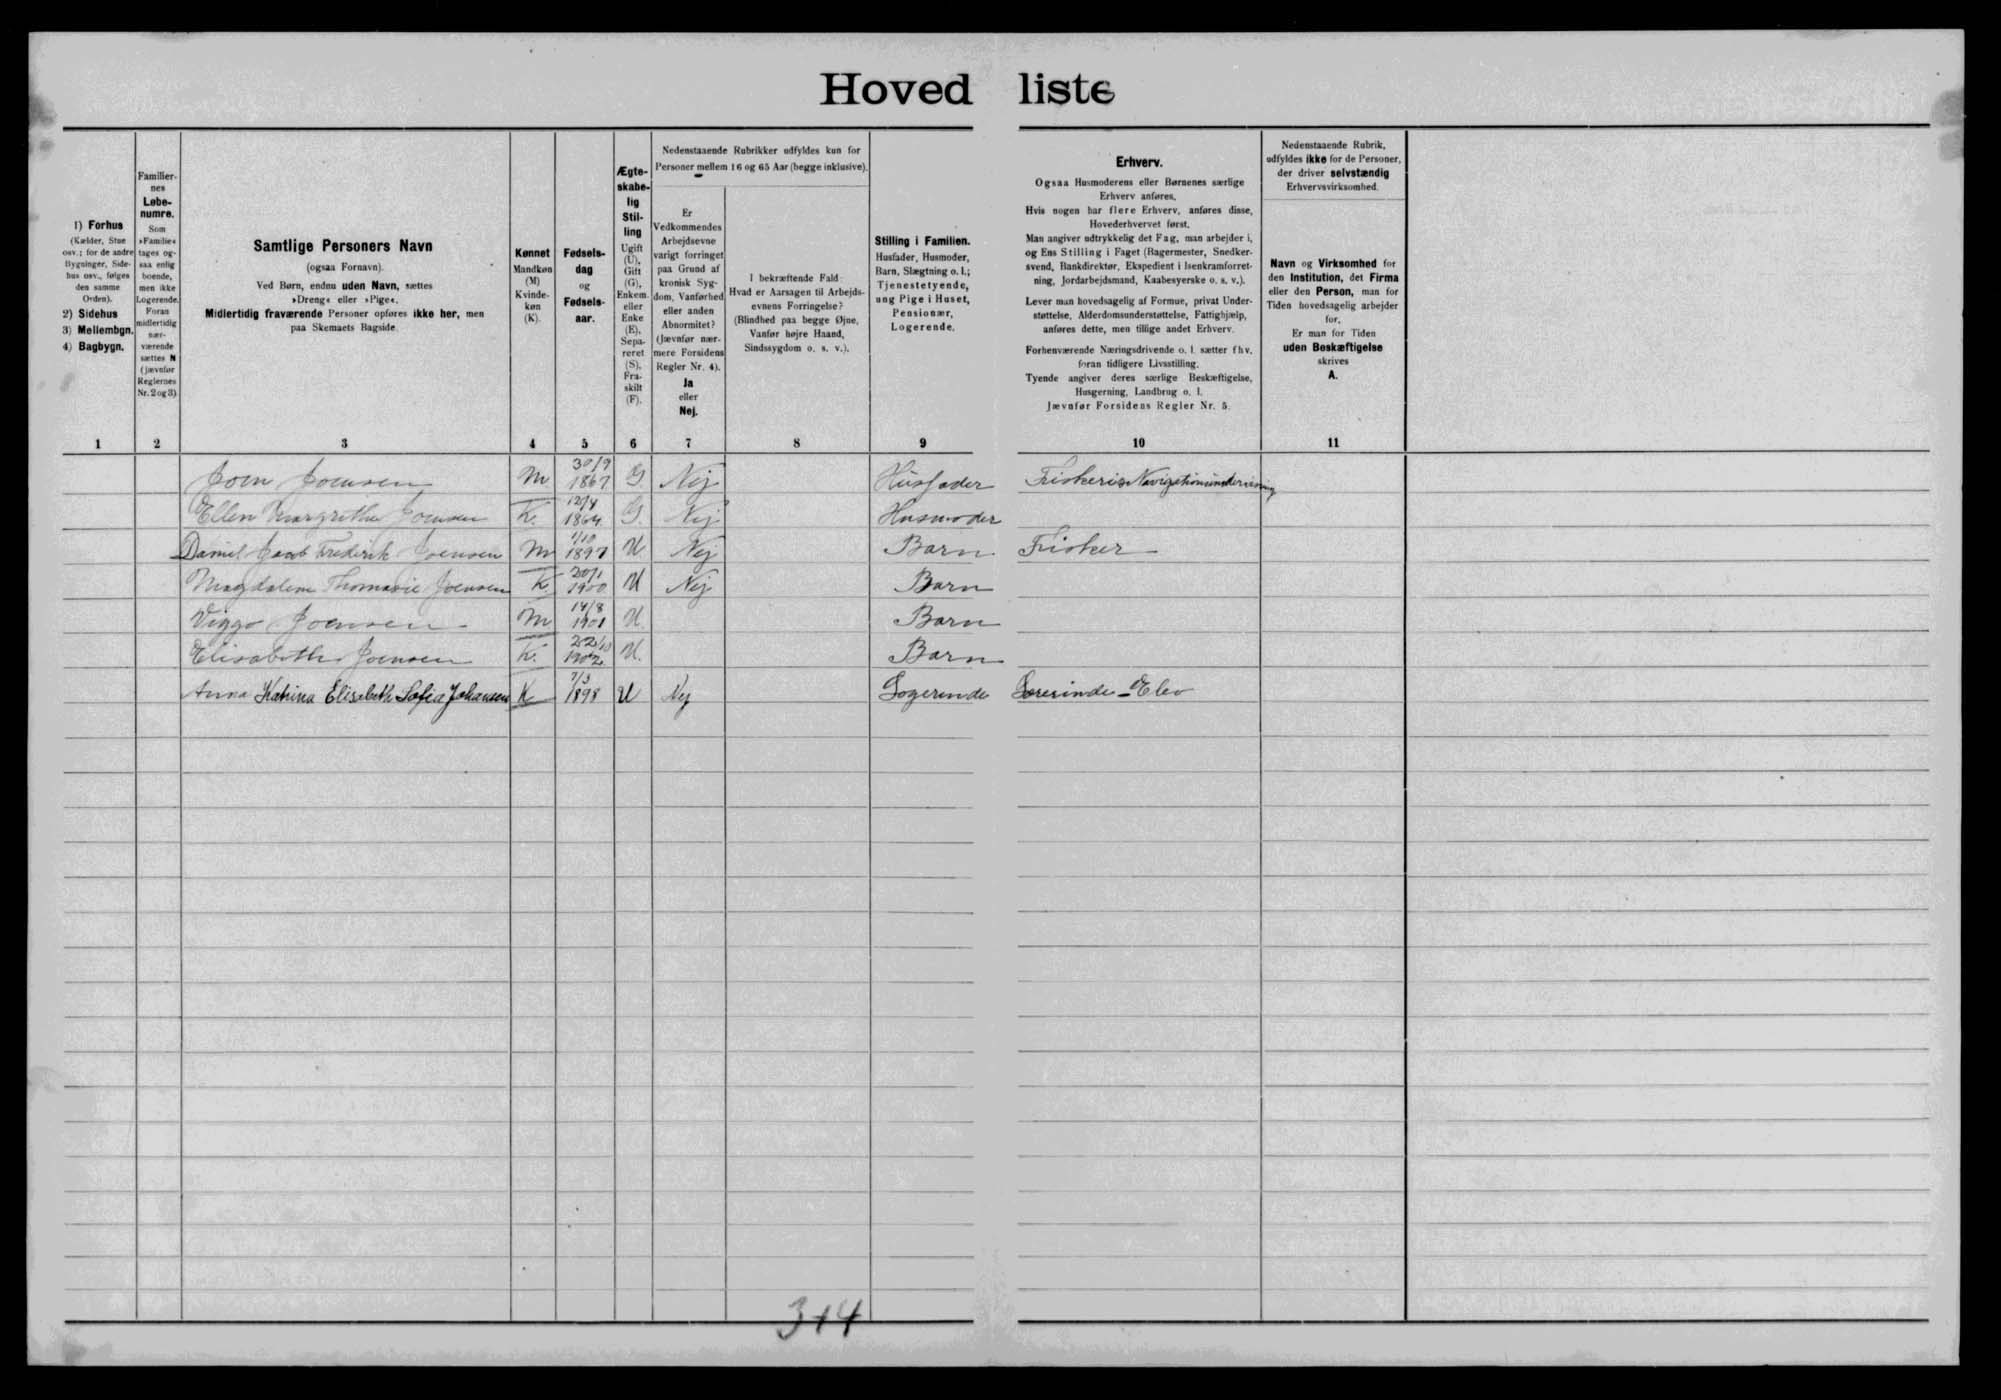 Hovedliste
1) Forhus
(Kælder, Stue
osv.; for de andre
Bygninger, Side-
hus osv., følges
den samme
Orden).
2) Sidehus
3) Mellembgn.
4) Bagbygn.
1
Familier-
nes
Løbe-
numre.
Som
»Familie«
tages og-
saa enlig
boende,
men ikke
Logerende.
Foran
midlertidig
nær-
værende
sættes N
(jævnfør
Reglernes
Nr. 2 og 3)
2
Samtlige Personers Navn
(ogsaa Fornavn).
Ved Børn, endnu uden Navn, sættes
»Dreng« eller »Pige«.
Midlertidig fraværende Personer opføres ikke her, men
paa Skemaets Bagside.
3
Kønnet
Mandkøn
(M)
Kvinde-
køn
(K).
4
Fødsels-
dag
og
Fødsels-
aar.
5
Ægte-
skabe-
lig
Stil-
ling
Ugift
(U),
Gift
(G),
Enkem.
eller
Enke
(E),
Sepa-
reret
(S),
Fra-
skilt
(F).
6
Nedenstaaende Rubrikker udfyldes kun for
Personer mellem 16 og 65 Aar (begge inklusive).
Er
Vedkommendes
Arbejdsevne
varigt forringet
paa Grund af
kronisk Syg-
dom, Vanførhed
eller anden
Abnormitet?
(Jævnfør nær-
mere Forsidens
Regler Nr. 4).
Ja
eller
Nej.
7
I bekræftende Fald:
Hvad er Aarsagen til Arbejds-
evnens Forringelse?
(Blindhed paa begge Øjne,
Vanfør højre Haand,
Sindssygdom o. s. v.).
8
Stilling i Familien.
Husfader, Husmoder,
Barn, Slægtning o. l.;
Tjenestetyende,
ung Pige i Huset,
Pensionær,
Logerende.
9
Erhverv.
Ogsaa Husmoderens eller Børnenes særlige
Erhverv anføres.
Hvis nogen har flere Erhverv, anføres disse,
Hovederhvervet først.
Man angiver udtrykkelig det Fag, man arbejder i,
og Ens Stilling i Faget (Bagermester, Snedker-
svend, Bankdirektør, Ekspedient i Isenkramforret-
ning, Jordarbejdsmand, Kaabesyerske o. s. v.).
Lever man hovedsagelig af Formue, privat Under-
støttelse, Alderdomsunderstøttelse, Fattighjælp,
anføres dette, men tillige andet Erhverv.
Forhenværende Næringsdrivende o. l. sætter fhv.
foran tidligere Livsstilling.
Tyende angiver deres særlige Beskæftigelse,
Husgerning, Landbrug o. l.
Jævnfør Forsidens Regler Nr. 5.
10
Nedenstaaende Rubrik,
udfyldes ikke for de Personer,
der driver selvstændig
Erhvervsvirksomhed.
Navn og Virksomhed for
den Institution, det Firma
eller den Person, man for
Tiden hovedsagelig arbejder
for.
Er man for Tiden
uden Beskæftigelse
skrives
A.
11
Joen Joensen M 30/9 1867 G. Nej Husfader Fiskeri Navigationsundervisning
Ellen Margrethe Joensen K. 12/4 1864 G. Nej Husmoder
Daniel Jacob Frederik Joensen M 1/10 1897 U Nej Barn Fisker
Magdalene Thomasie Joensen K 20/1 1900 U Nej Barn
Viggo Joensen M 14/8 1901 U. Barn
Elisabeth Joensen K. 22/10 1902 U. Barn
Anna Katrina Elisabeth Sofia Johansen K 7/3 1898 U Nej Logerende Lærerinde-Elev
314